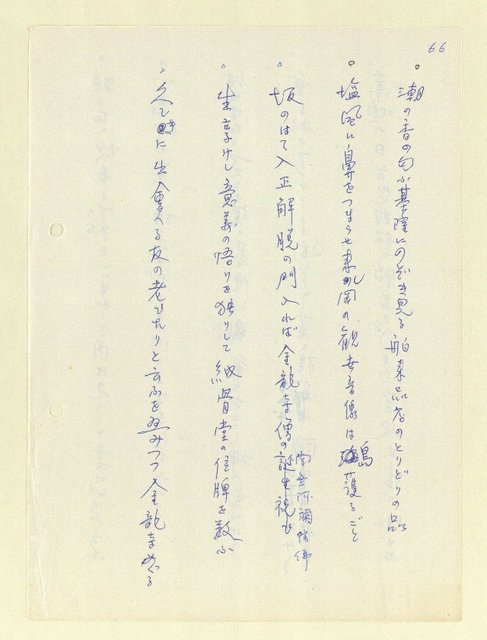 66
。潮の香の匂ふ基隆にのぞき見る舶来品店のとりどりの品
。塩風に鼻をつまらせ 岡の観世音像は島護るごと
。坂のはて入正解脱の門入れば金龍寺僧の誕生祝も
南無阿彌陀佛
。生享けし意義の悟りを独りして納骨堂の位牌を数ふ
。久々に出會へる友の老ひたりと云ふを 金龍寺